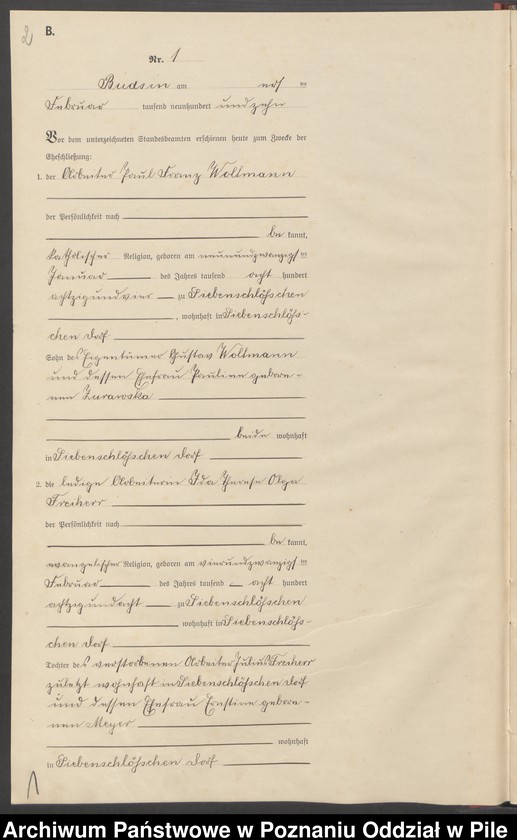 2
B.
Nr. 1
Budsin am ten
Februar tausend neunhundert und zehn
Vor dem unterzeichneten Standesbeamten erschienen heute zum Zwecke der
Eheschließung:
1. der Arbeiter Paul Franz Wollmann
der Persönlichkeit nach
be kannt,
katholischer Religion, geboren am neunundzwanzigsten
Januar des Jahres tausend acht hundert
achtzigundvier zu Siebenschlößchen
, wohnhaft in Siebenschlöß-
chen Dorf
Sohn des Eigentümer Gustav Wollmann
und dessen Ehefrau Pauline gebore-
nen Zurawska
beide wohnhaft
in Siebenschlößchen Dorf
2. die ledige Arbeiterin Ida Therese Olga
Freiherr
der Persönlichkeit nach
be kannt,
evangelischer Religion, geboren am vierundzwanzigsten
Februar des Jahres tausend acht hundert
achtzigundacht zu Siebenschlößchen
, wohnhaft in Siebenschlöß-
chen Dorf
Tochter des verstorbenen Arbeiter Julius Freiherr
zuletzt wohnhaft in Siebenschlößchen Dorf
und dessen Ehefrau Ernstine gebore-
nen Meyer
wohnhaft
in Siebenschlößchen Dorf
Archiwum Państwowe w Poznaniu Oddział w Pile